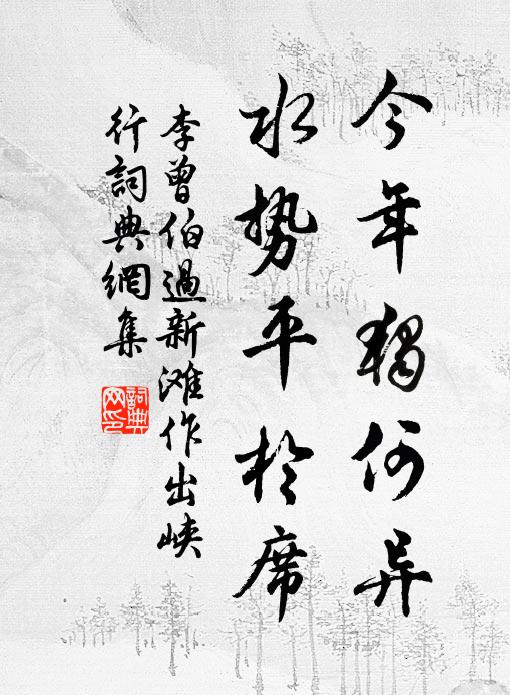 今年獨何异
水势平於席
李曾伯過新滩作出峡
行詞典網集
詞典网印